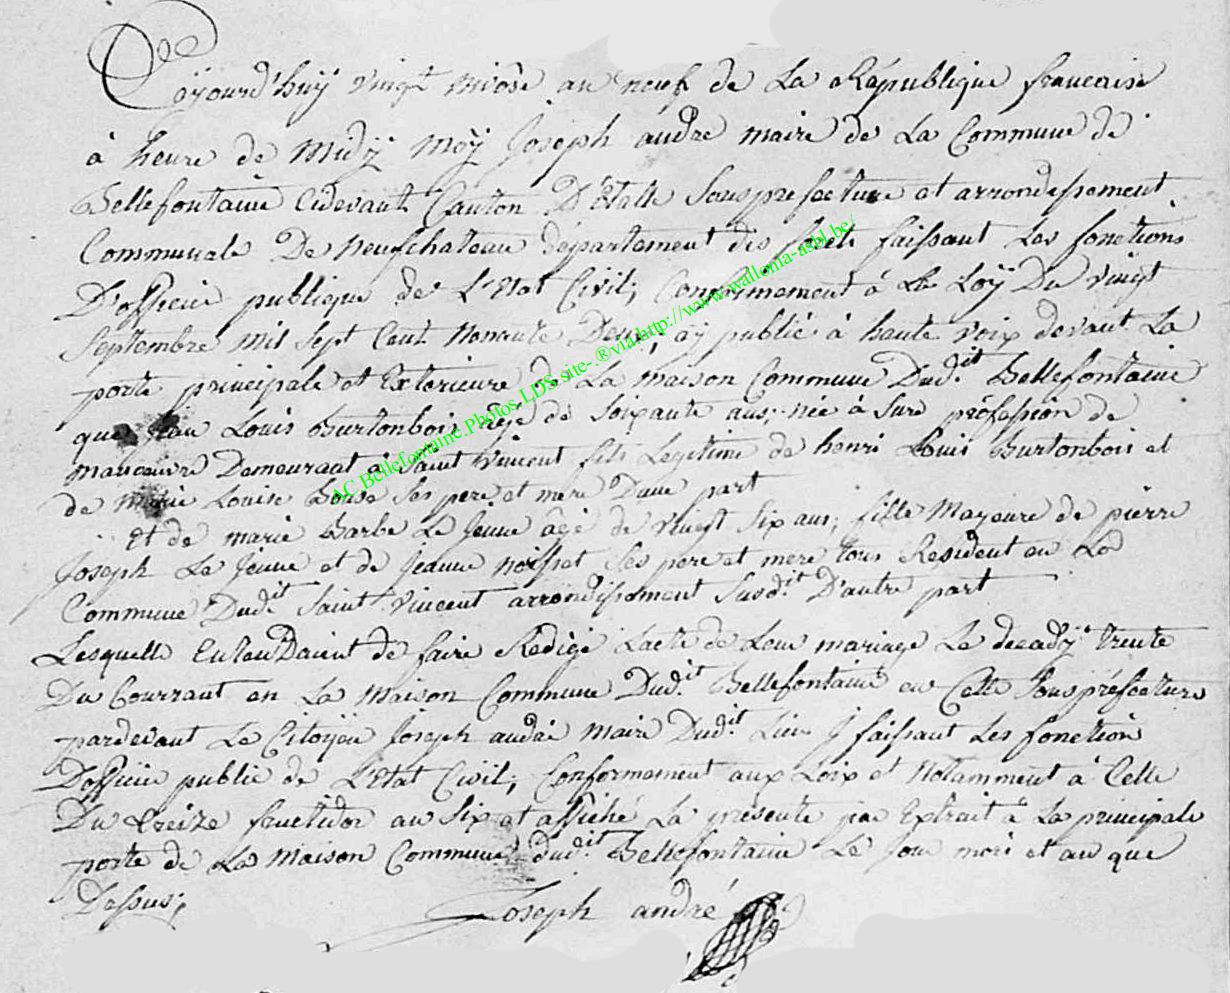 Cejourd'huÿ vingt nivôse an neuf de La République francaise
à heure de Midÿ Moÿ Joseph andre maire de La Commune de
Bellefontaine Cidevant Canton D'Etalle Souspréfecture et arrondissement
Communale De Neufchateau département des forêts faissant Les fonctions
D'officié publique de L'Etat Civil, Conformement à La Loÿ Du vingt
Septembre mil Sept Cent Nonante Deux, aÿ publié à haute voix devant La
porte principale et Exterieure de La maison Commune Dudit Bellefontaine
que Jean Louis Burtonboi, âgé de soixante ans, née à Sure profession de
manoeuvre Demeurant à Saint Vincent fils Legitime de henri Louis Burtonbois et
de Marie Louise Bouse Ses pere et mere D'une part
Et de marie Barbe Le Jeune âgé de vingt Six ans, fille Majeure de pierre
Joseph Le Jeune et de Jeanne Noisset Ses pere et mere tous Resident en La
Commune Dudit Saint Vincent arrondissement Susdit D'autre part
Lesquelle EntenDaient de faire Redigé L'acte de Leur mariage Le decadÿ trente
Du Courrant en La Maison Commune Dudit Bellefontaine en Cette Souspréfecture
pardevant Le Citoÿen Joseph andré Maire Dudit Lieu faissant Les fonction
D'officié public de L'Etat Civil, Conformement aux Loix et Notamment à Celle
Du treize fructidor an Six et affiché La presente par Extrait à La principale
porte de La Maison Commune dudit Bellefontaine Le Jour mois et an que
Dessus,
Joseph andré
AC.Bellefontaine.Photos.LDS.site-®via.http://www.wallonia-asbl.be/